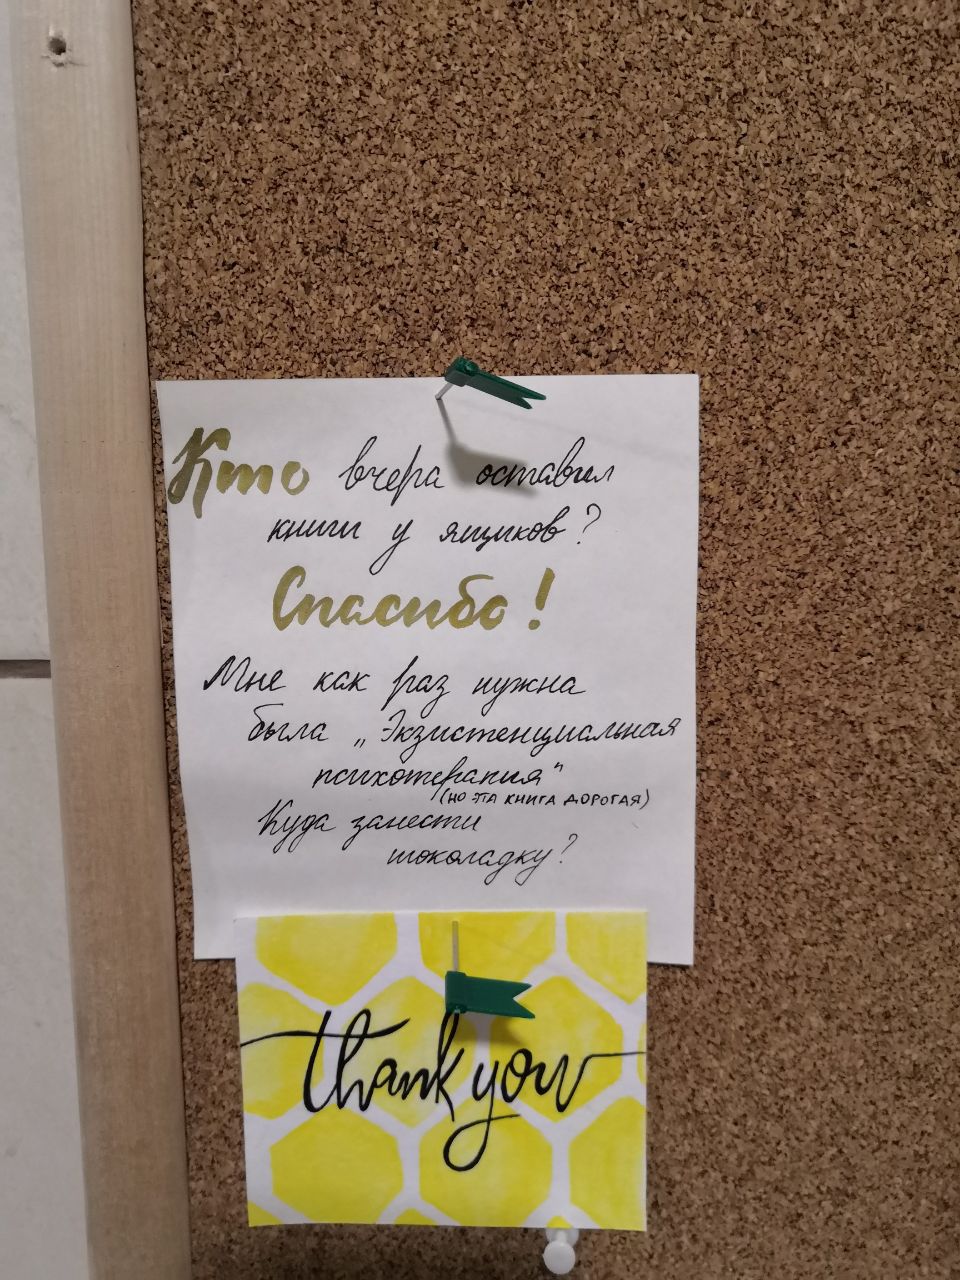 Кто вчера оставил
книги у ящиков?
Спасибо!
Мне как раз нужна
была „Экзистенциальная
психотерапия“
(НО ЭТА КНИГА ДОРОГАЯ)
Куда занести
шоколадку?
thank you